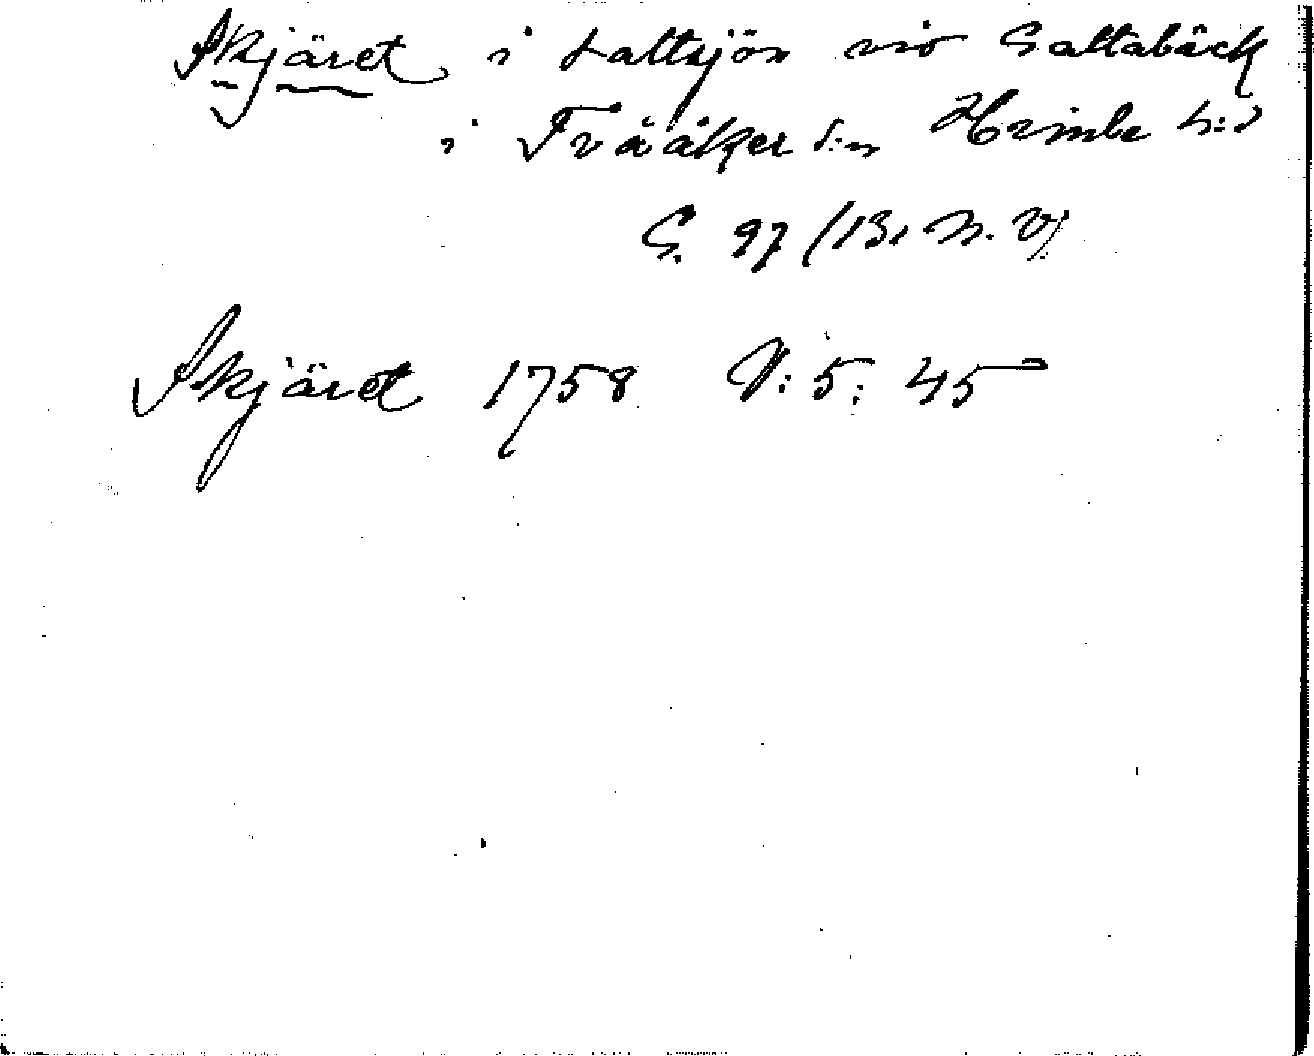 Skjäret i saltsjön vid Galtabäck
i Tvååker s:n Himle h:d
G. 97 (B. N. V)
Skjäret 1758 V: 5: 45